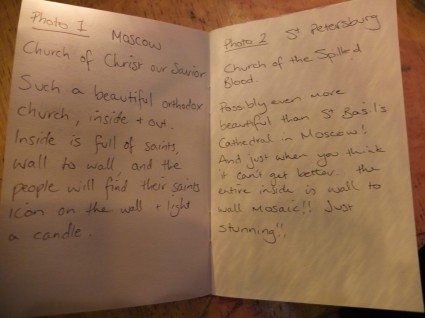 Photo 1 Moscow
Church of Christ our Savior
Such a beautiful orthodox
church, inside + out.
Inside is full of saints,
wall to wall, and the
people will find their saints
icon on the wall + light
a candle.
Photo 2 St Petersburg
Church of the Spilled
Blood.
Possibly even more
beautiful than St Basil's
Cathedral in Moscow!
And just when you think
it can't get better. the
entire inside is wall to
wall mosaic!! Just
stunning!!